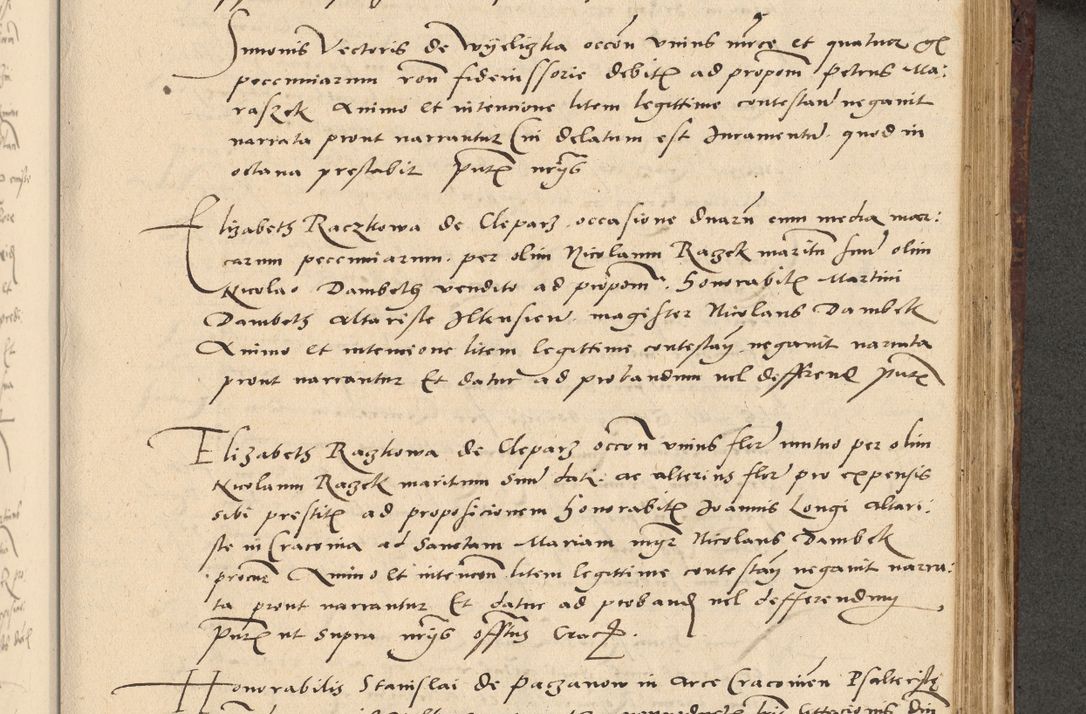 Simonis Vectoris de Wyelizka occoñ vnius mrce et quatuor gr
pecuniarum roñ fideiussorie debit ad propoñ Petrus Ma:
raszek Animo et intencione litem legittime contestañ negauit
narrata prout narrantur Cui delatum est Iuramentum quod in
octaua prestabit Pñt mgris
Elizabeth Raczkowa de Clepars occasione duarũ cum media mar:
carum pecuniarum per olim Nicolaum Raczek maritũ suũ olim
Nicolao Dambek vendito ad propoñ honorabil Martini
Dambek altariste Ilkusien magister Nicolaus Dambek
Animo et intencione litem legittime contestañ negauit narrata
prout narrantur Et datur ad probandum vel defferend Pñt
Elizabeth Raczkowa de Clepars occoñ vnius flor mutuo per olim
Nicolaum Raczek maritum suũ dati ac alterius flor pro expensis
sibi prestit ad proposicionem honorabil Ioannis Longi altari:
ste in Cracouia ad Sanctam Mariam mgr Nicolaus Dambek
procur Animo et intencoñ litem legittime contestañ negauit narra:
ta prout narrantur Et datur ad proband vel defferendum
Pñt ut supra mgris offitus Crac
Honorabilis Stanislai de Paczanow in Arce Cracouieñ Psalteriste